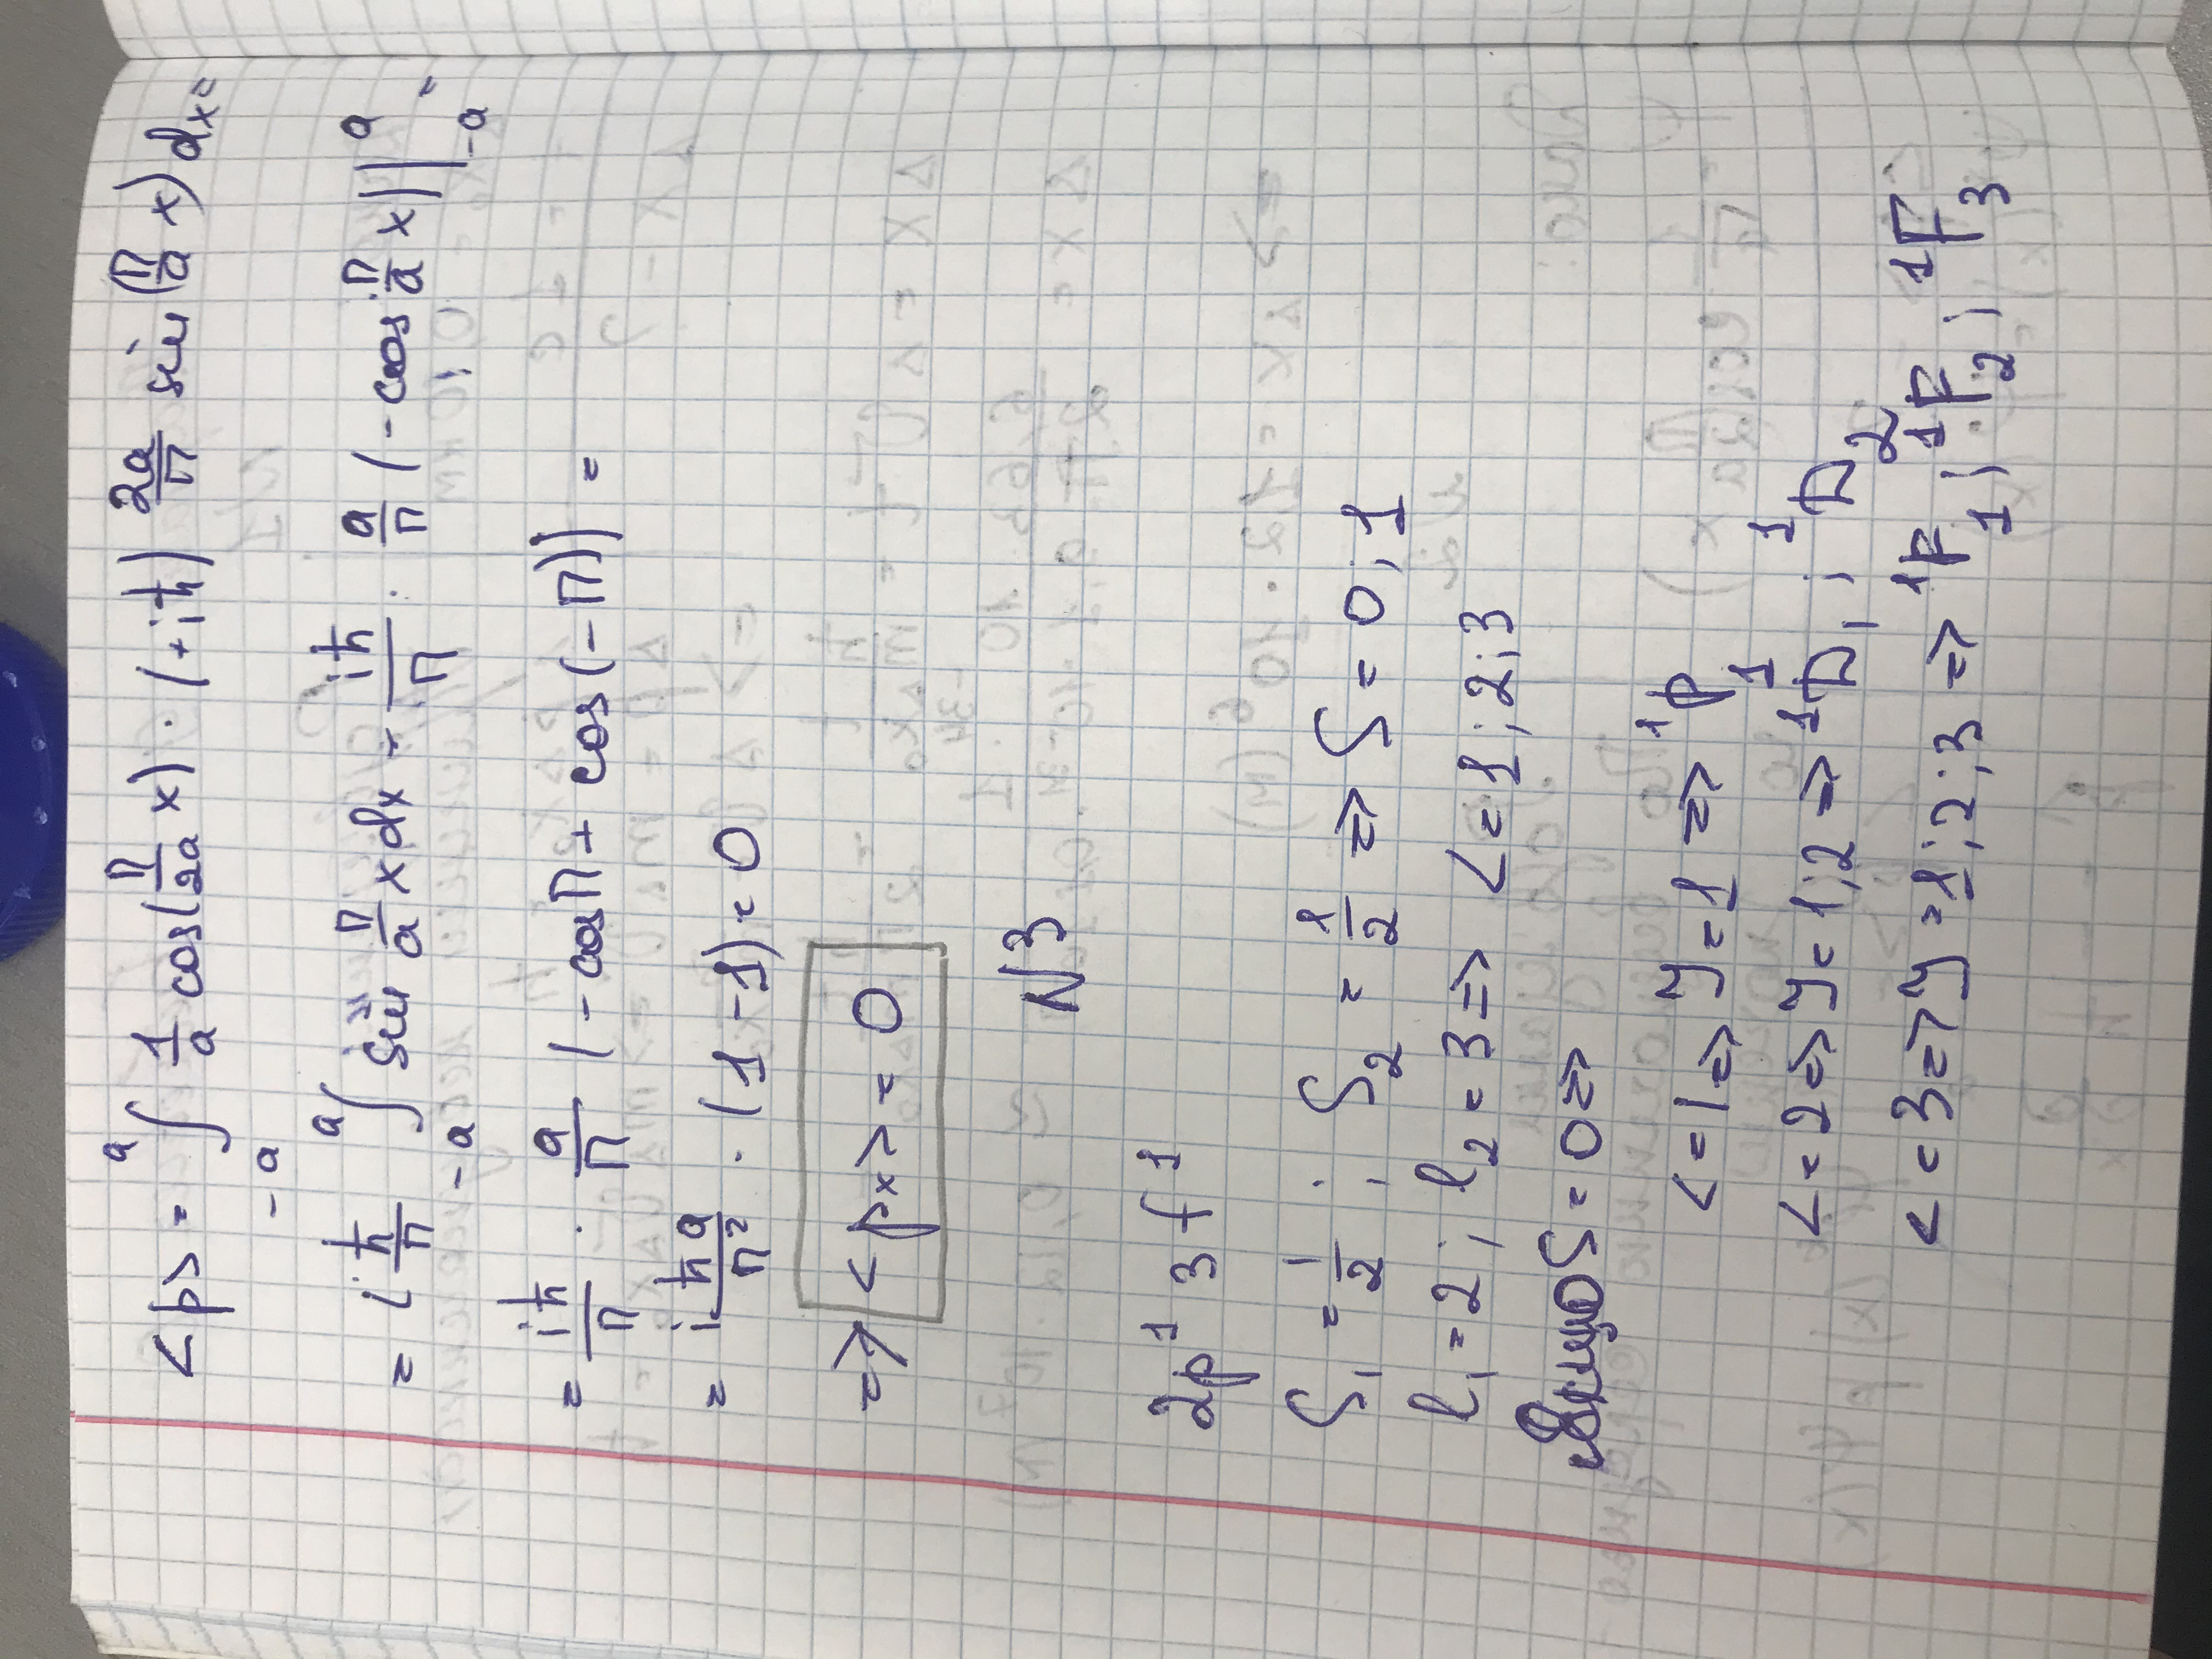 <p> = ∫_{-a}^{a} 1/a cos(π/2a x) · (+iħ) 2a/π sin(π/a x) dx =
= i ħ/π ∫_{-a}^{a} sin π/a x dx = iħ/π · a/π (-cos π/a x)|_{-a}^{a} =
= iħ/π · a/π (-cosπ + cos(-π)) =
= i ħa/π² · (1-1) = 0
=> <pₓ> = 0
N3
2p¹ 3f¹
S₁ = 1/2 ; S₂ = 1/2 => S = 0; 1
l₁ = 2; l₂ = 3 => L = 1; 2; 3
Якщо S = 0 =>
L = 1 => J = 1 => ¹P₁
L = 2 => J = 1; 2 => ¹D₁ ; ¹D₂
L = 3 => J = 1; 2; 3 => ¹F₁ ; ¹F₂ ; ¹F₃